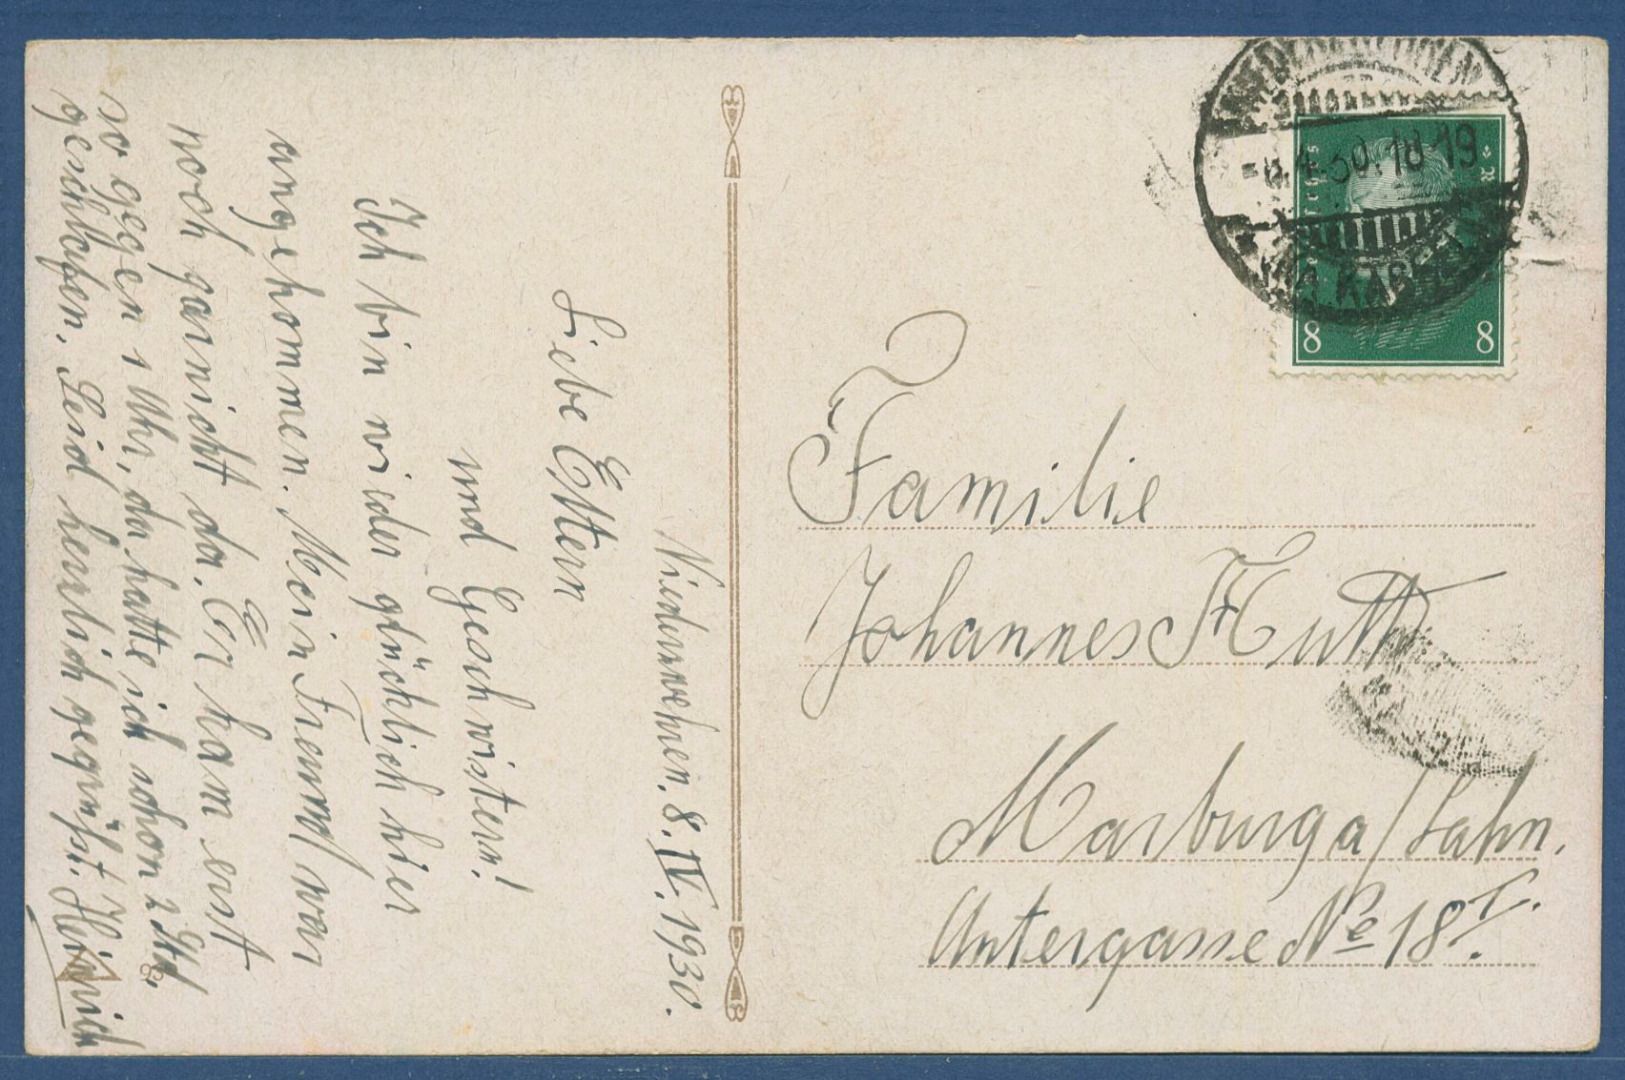 Niederzwehren. 8. IV. 1930.
Liebe Eltern
und Geschwistern!
Ich bin wieder glücklich hier
angekommen. Mein Freund war
noch garnicht da. Er kam erst
so gegen 1 Uhr, da hatte ich schon 2 Std.
geschlafen. Seid herrlich gegrüßt. Heinrich
4.30.18-19
KASSEL
8 8
Familie
Johannes Huth
Marburg a/Lahn.
Untergasse No 18 I.